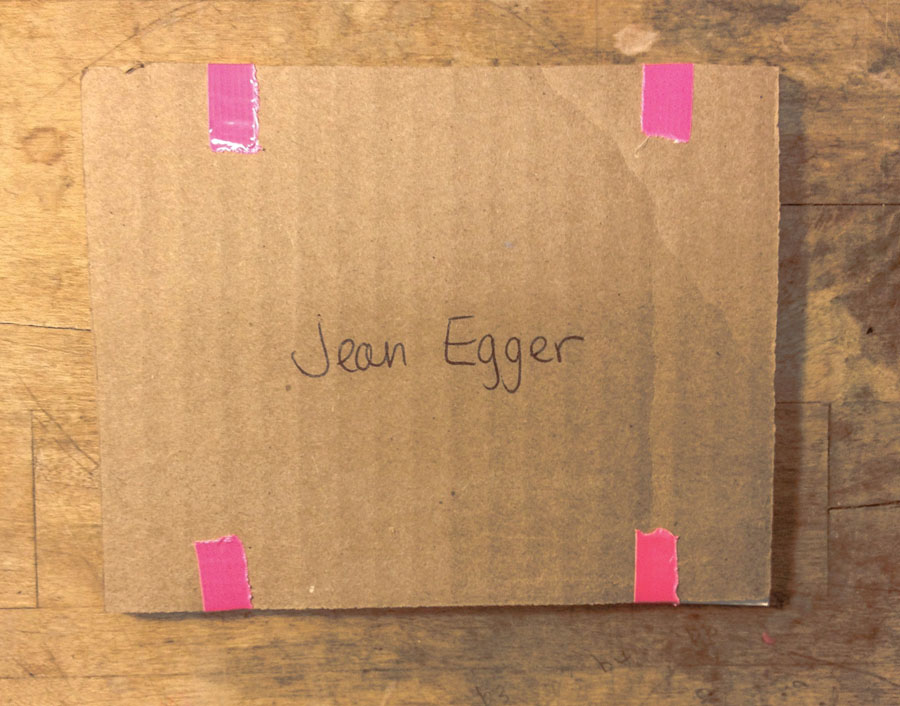 Jean Egger